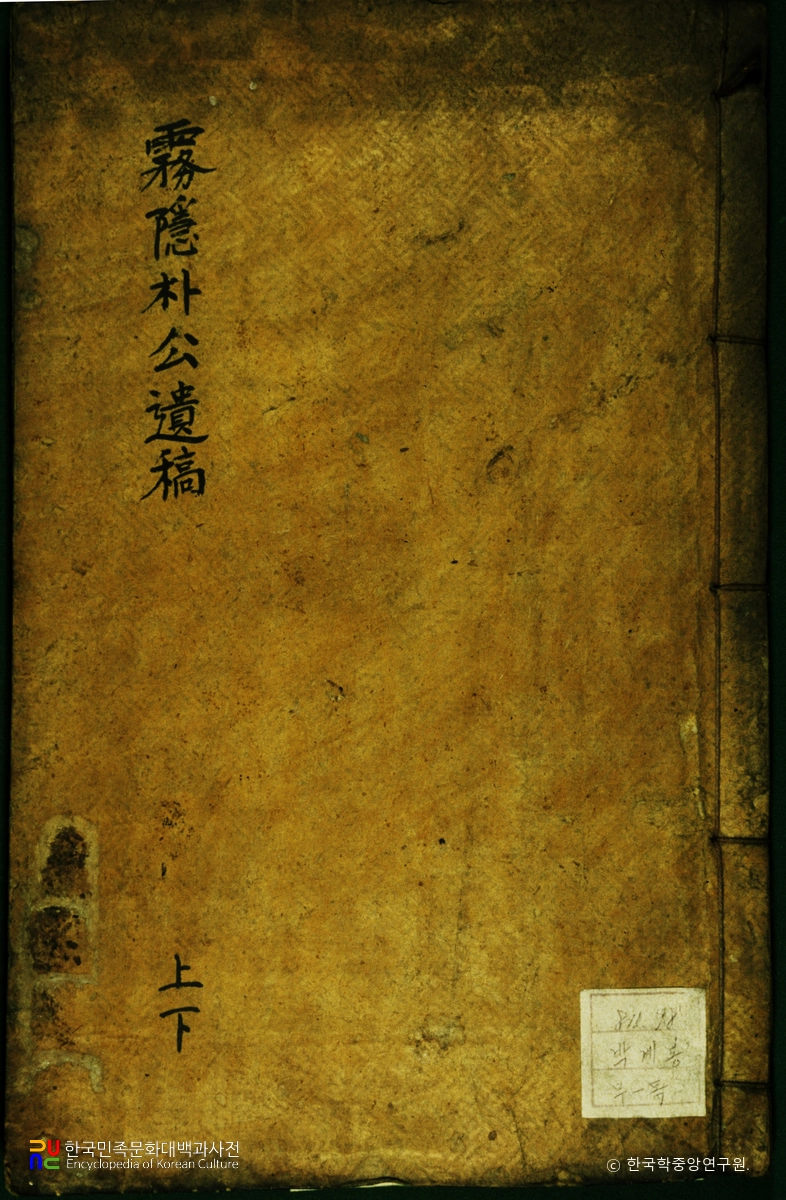 霧隱朴公遺稿
上下
한국민족문화대백과사전
Encyclopedia of Korean Culture
ⓒ 한국학중앙연구원.